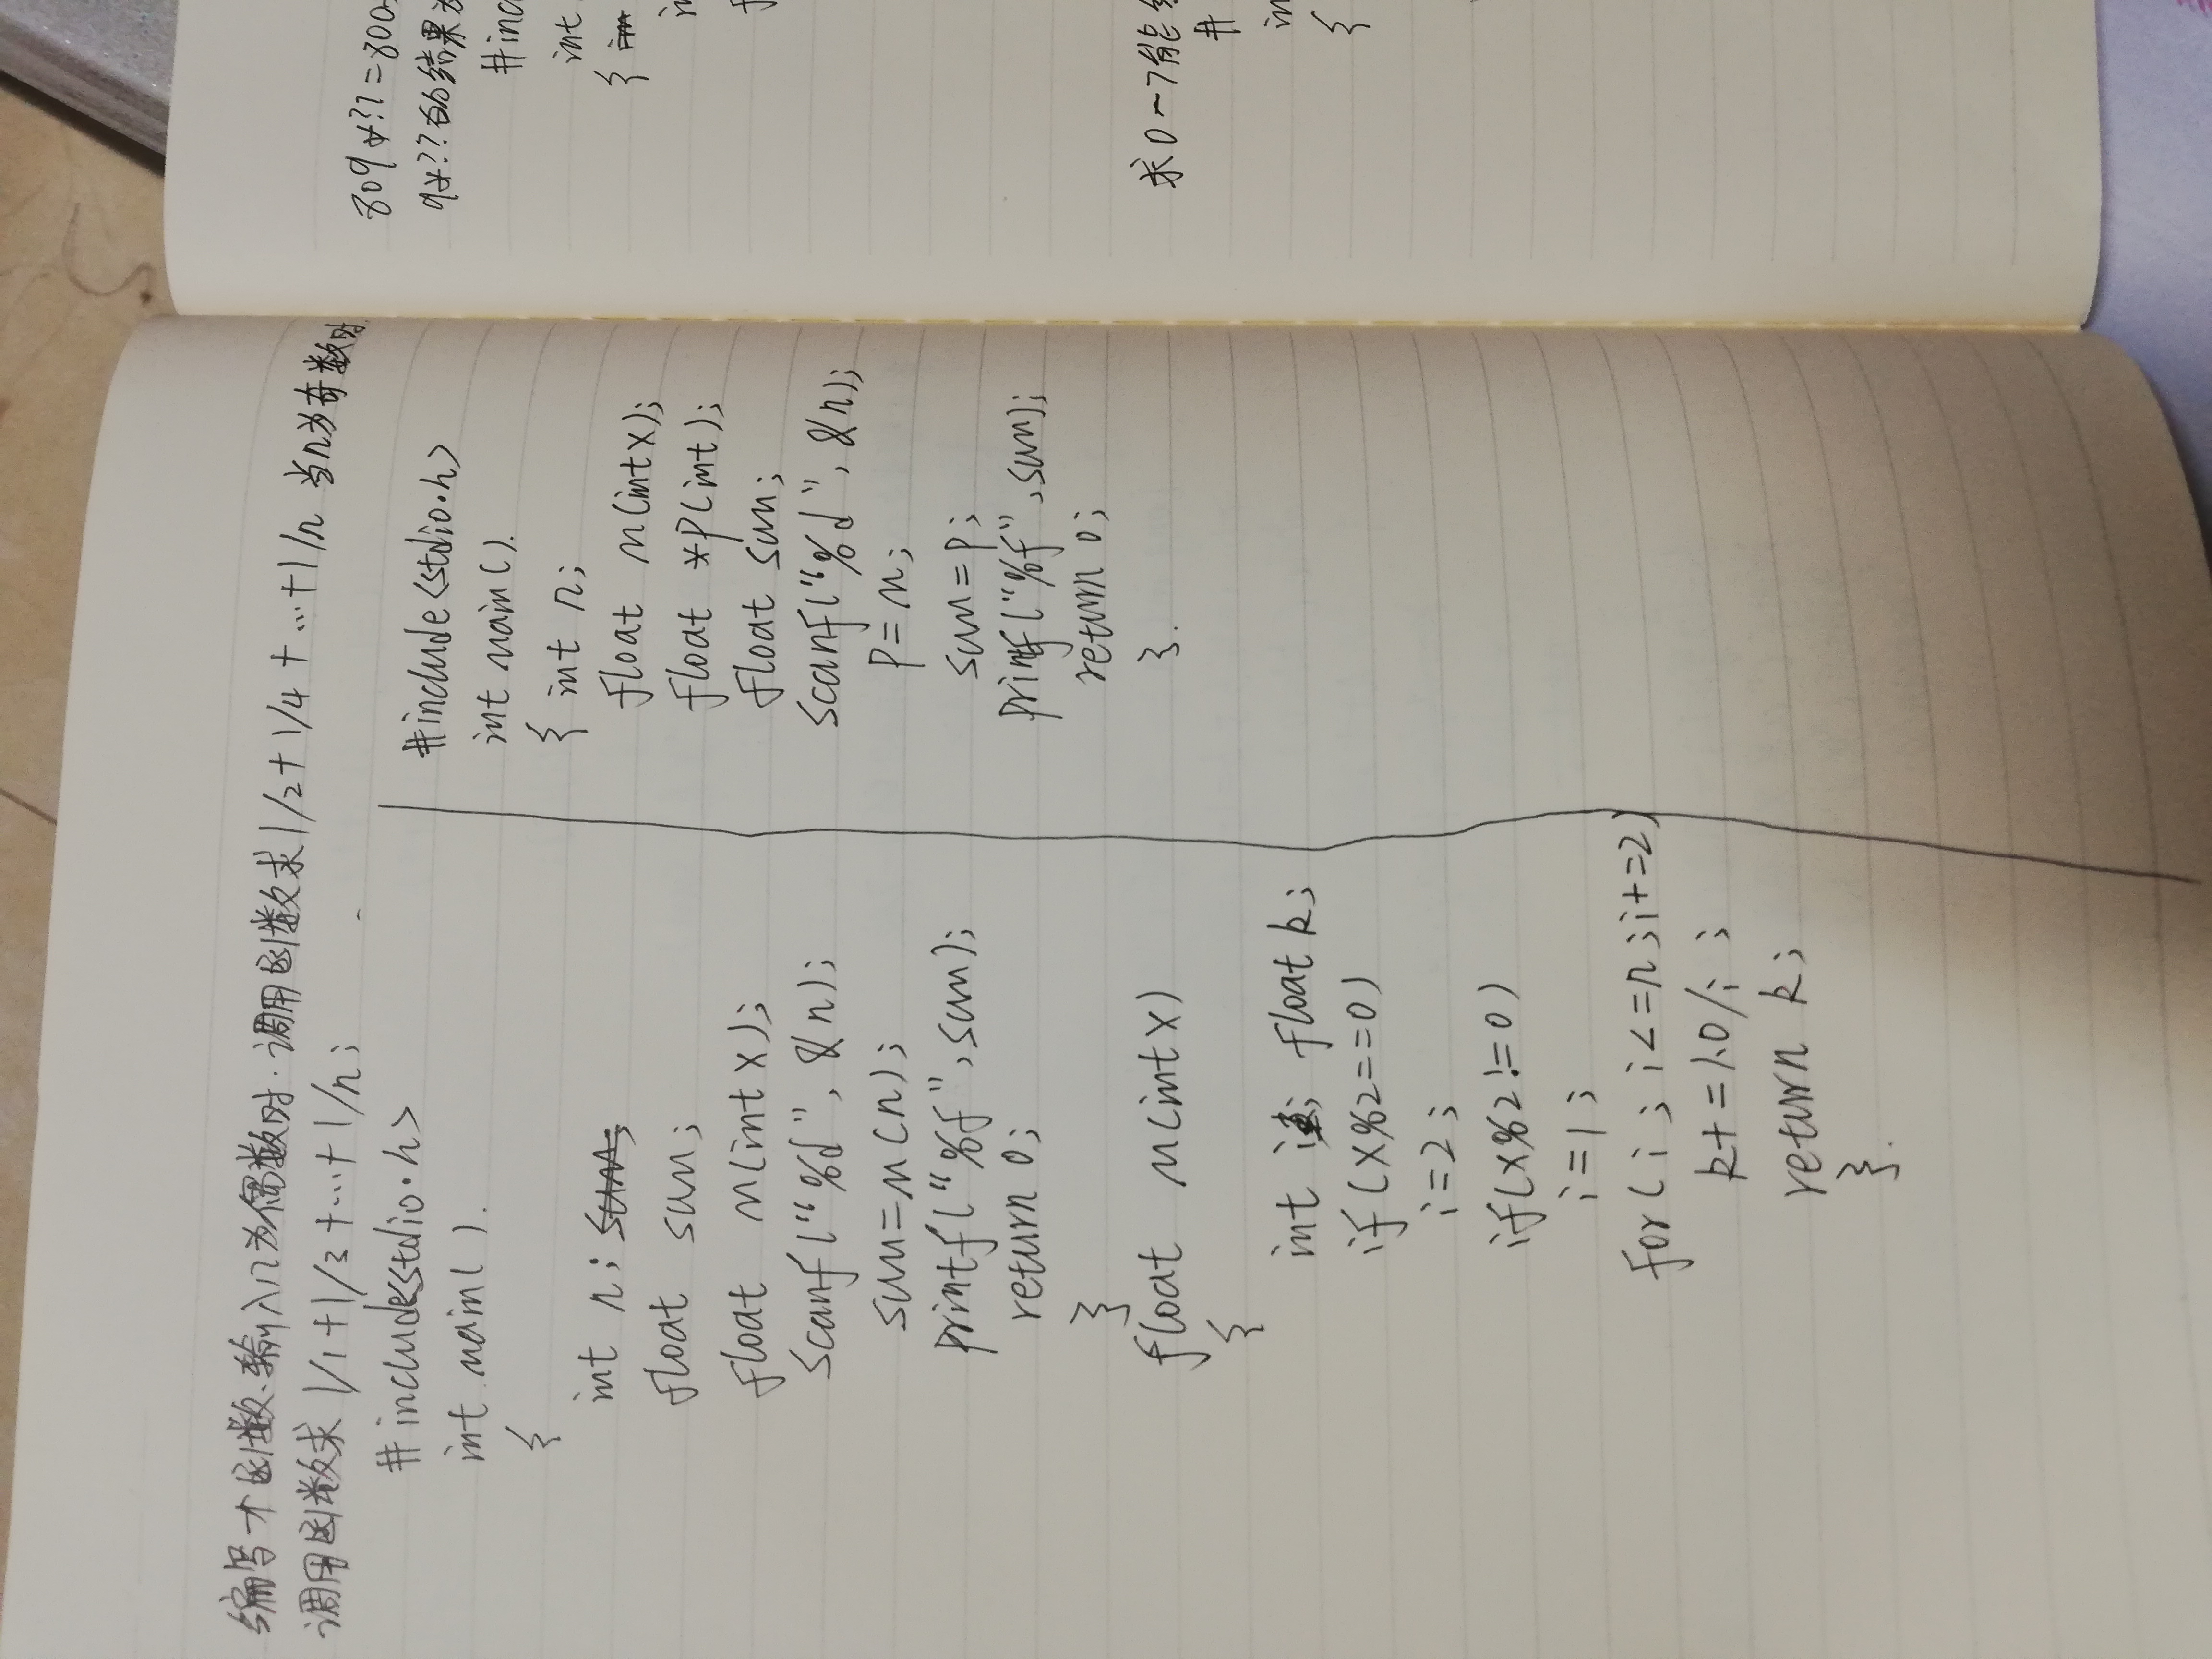 编写一个函数,输入n为偶数时.调用函数求1/2+1/4+...+1/n 当n为奇数时
调用函数求 1/1+1/3+...+1/n;
#include<stdio.h>
int main().
{
int n;
float sum;
float m(int x);
scanf("%d",&n);
sum=m(n);
printf("%f",sum);
return 0;
}
float m(int x)
{
int i; float k;
if(x%2==0)
i=2;
if(x%2!=0)
i=1;
for(i;i<=n;i+=2)
k+=1.0/i;
return k;
}.
#include<stdio.h>
int main().
{ int n;
float m(int x);
float *P(int);
float sum;
scanf("%d",&n);
P=m;
sum=P;
printf("%f",sum);
return 0;
}.
809*??=800
9*??的结果为
#inc
int
{
求0~7能
#
in
{